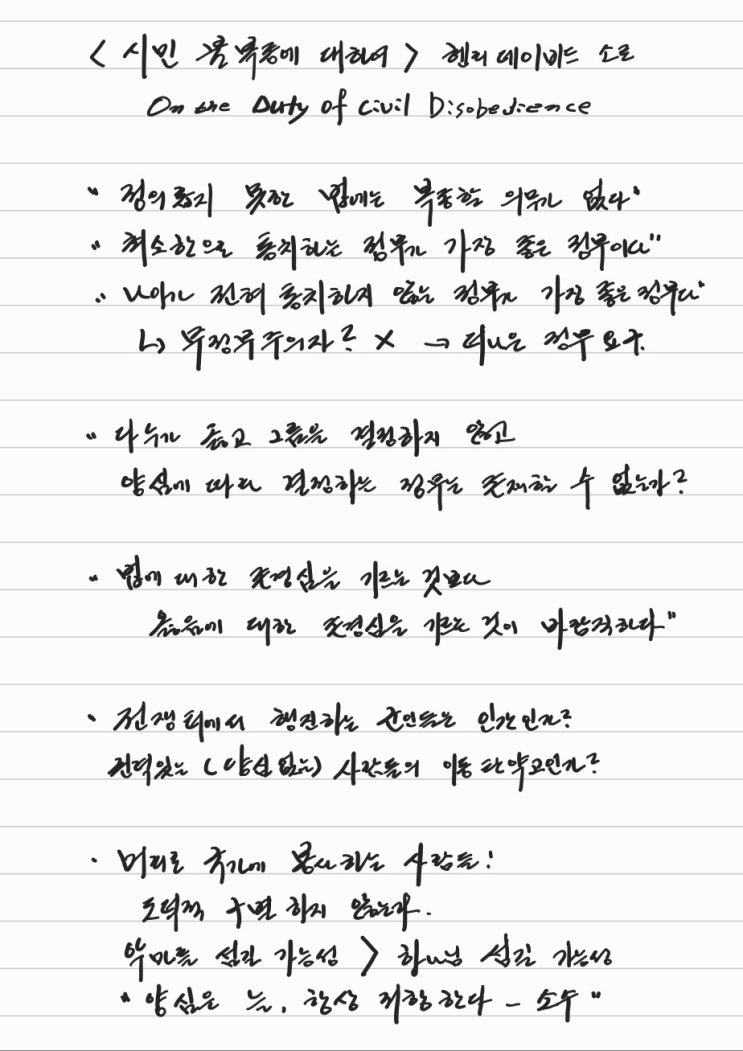 < 시민 불복종에 대하여 > 헨리 데이비드 소로
On the Duty of Civil Disobedience
" 정의롭지 못한 법에는 복종할 의무가 없다"
" 최소한으로 통치하는 정부가 가장 좋은 정부이다"
" 나아가 전혀 통치하지 않는 정부가 가장 좋은 정부다"
↳ 무정부주의자? X → 더나은 정부 요구.
" 다수가 옳고 그름을 결정하지 않고
양심에 따라 결정하는 정부는 존재할 수 없는가?
" 법에 대한 존경심을 기르는 것보다
옳음에 대한 존경심을 기르는 것이 바람직하다"
· 전쟁터에서 행진하는 군인들은 인간인가?
권력있는 (양심 없는) 사람들의 이동 탄약고인가?
· 머리로 국가에 봉사하는 사람들!
도덕적 구별 하지 않는다.
악마를 섬길 가능성 > 하나님 섬길 가능성
" 양심은 늘, 항상 저항한다 - 소수 "